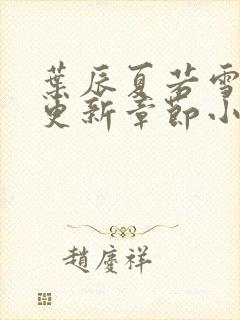 葉辰夏若雪
更新章節小
趙慶祥